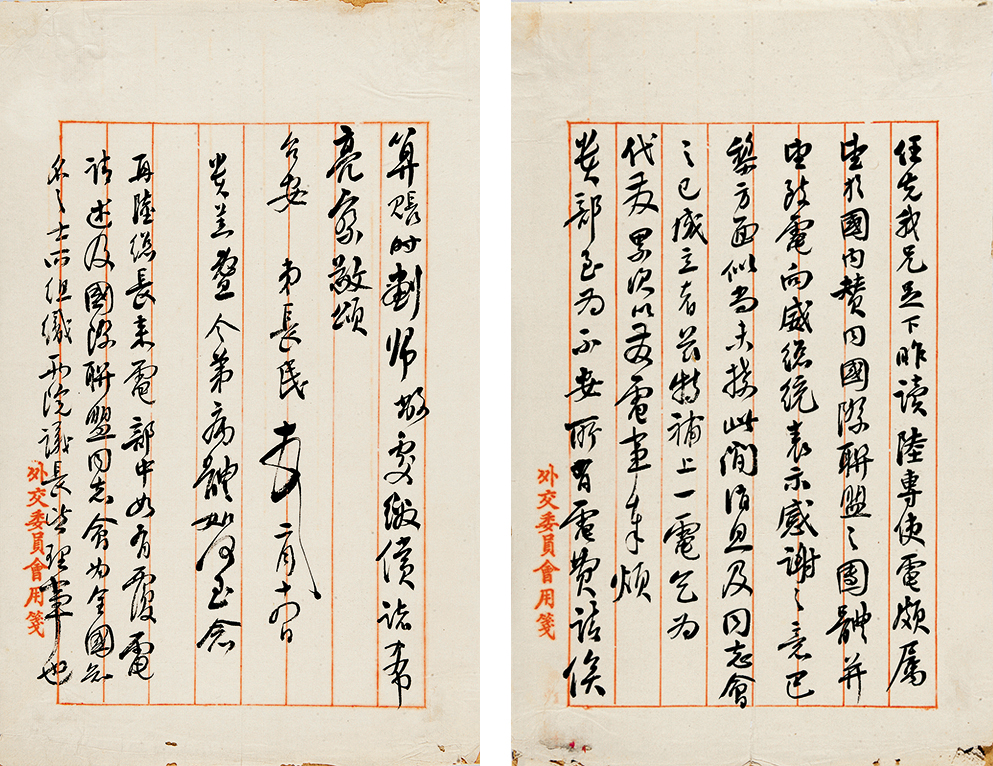 任先我兄足下昨讀陸專使電頗屬
望於國内贊同國際聯盟之團體并
望致電向威總統表示感謝之意巴
黎方面似尚未接此間消息及同志會
之已成立者茲特補上一電乞為
代發累次以發電事奉煩
貴部至為不安所有電費請俟
外交委員會用箋
算賬時劃歸敝處繳償諸希
亮察敬頌
台安 弟長民 二月十四日
貴恙 今弟病體如何至念
再陸總長來電部中如有覆電
請述及國際聯盟同志會為全國知
名之士所組織兩院議長皆理事也
外交委員會用箋